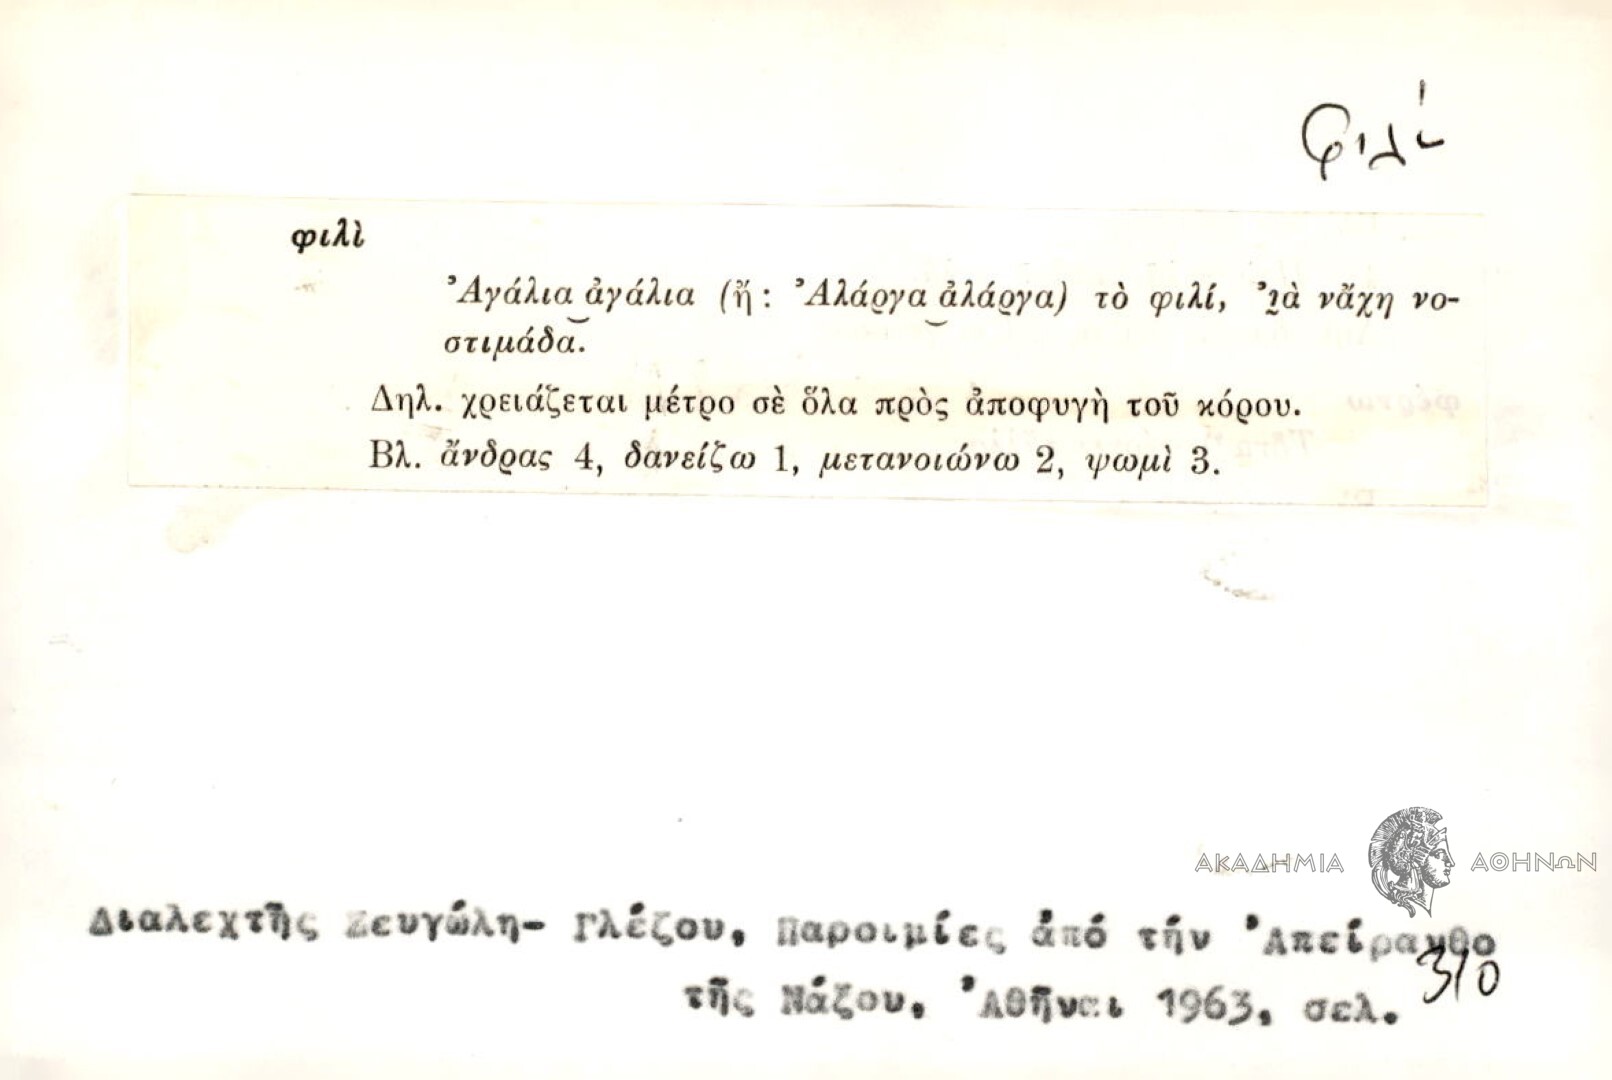 φιλί
φιλὶ
Ἀγάλια‿ἀγάλια (ἤ: Ἀλάργα‿ἀλάργα) τὸ φιλί, νἄχη νο-
στιμάδα.
Δηλ. χρειάζεται μέτρο σὲ ὅλα πρὸς ἀποφυγὴ τοῦ κόρου.
Βλ. ἄνδρας 4, δανείζω 1, μετανοιώνω 2, ψωμὶ 3.
ΑΚΑΔΗΜΙΑ ΑΘΗΝΩΝ
Διαλεχτῆς Ζευγώλη- Γλέζου, Παροιμίες ἀπό τήν Ἀπείρανθο
τῆς Νάξου, Ἀθῆναι 1963, σελ. 310